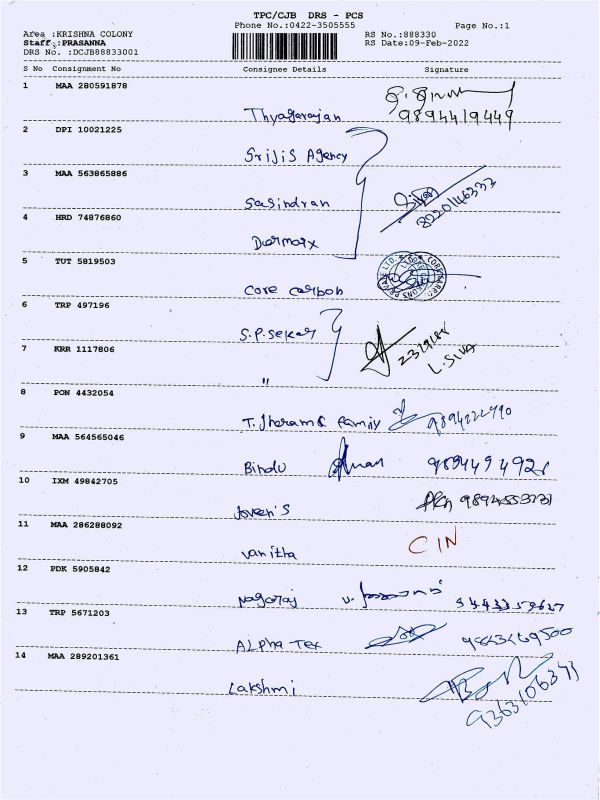 TPC/CJB DRS - PCS
Phone No.:0422-3505555 Page No.:1
Area :KRISHNA COLONY RS No.:888330
Staff :PRASANNA RS Date:09-Feb-2022
DRS No. :DCJB88833001
S No Consignment No Consignee Details Signature
1 MAA 280591878
Thyagarajan 9894419449
2 DPI 10021225
Srijis Agency
3 MAA 563865886
Sasindran 8220146333
4 HRD 74876860
Darmarx
5 TUT 5819503
Core Carbon
6 TRP 497196
S.P. Sekar
7 KRR 1117806
" L. SIVA
8 PON 4432054
T. Jheram & family 9894222790
9 MAA 564565046
Bindu
10 IXM 49842705
Joveen's
11 MAA 286288092
Vanitha CIN
12 PDK 5905842
Nagaraj
13 TRP 5671203
Alpha Tex
14 MAA 289201361
Lakshmi